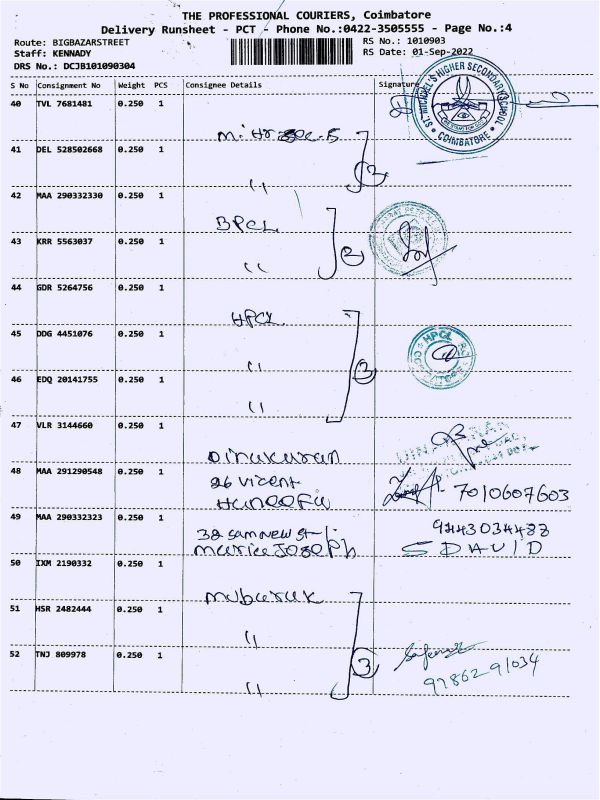 THE PROFESSIONAL COURIERS, Coimbatore
Delivery Runsheet - PCT - Phone No.:0422-3505555 - Page No.:4
Route: BIGBAZARSTREET
RS No.: 1010903
Staff: KENNADY
RS Date: 01-Sep-2022
DRS No.: DCJB101090304
S No Consignment No Weight PCS Consignee Details Signature
ST. MICHAEL'S HIGHER SECONDARY SCHOOL
COIMBATORE
40 TVL 7681481 0.250 1
41 DEL 528502668 0.250 1
" 2
42 MAA 290332330 0.250 1
BPCL
43 KRR 5563037 0.250 1
" 2
44 GDR 5264756 0.250 1
HPCL
45 DDG 4451076 0.250 1
HPCL
" 3
46 EDQ 20141755 0.250 1
"
47 VLR 3144660 0.250 1
Dinakaran
48 MAA 291290548 0.250 1
26 vicent
Haneefa
7010607603
49 MAA 290332323 0.250 1
38 samnew st
Maurice Joseph
9443034488
S DAVID
50 IXM 2190332 0.250 1
Mubaruk
51 HSR 2482444 0.250 1
"
52 TNJ 809978 0.250 1
" 3
97862 91034